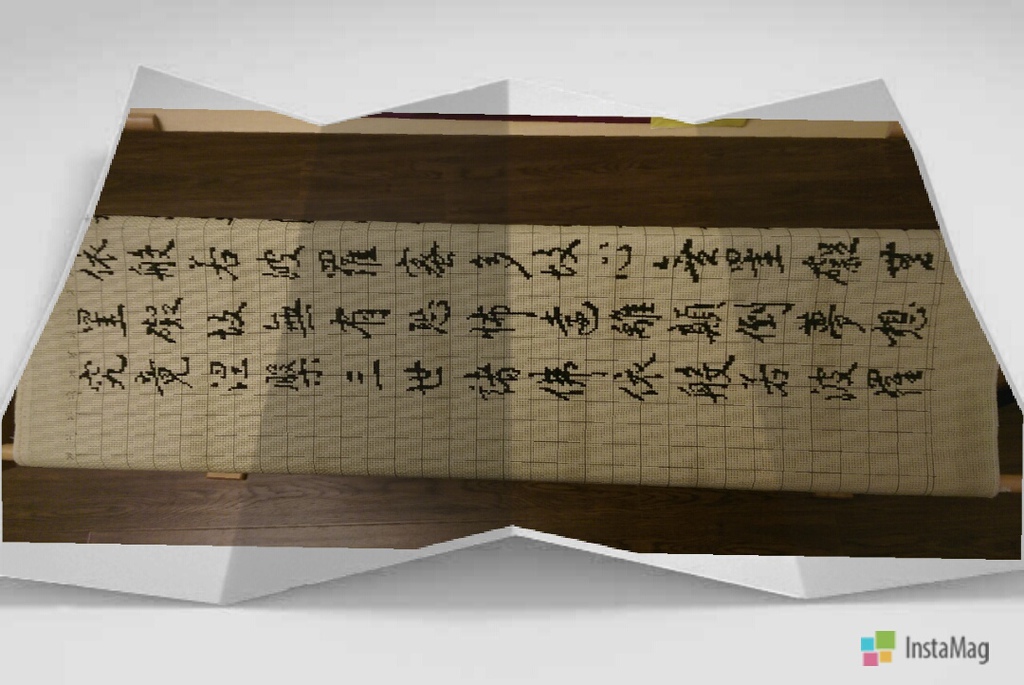 依般若波羅蜜多故心無罣礙無
罣礙故無有恐怖遠離顛倒夢想
究竟涅槃三世諸佛依般若波羅
InstaMag